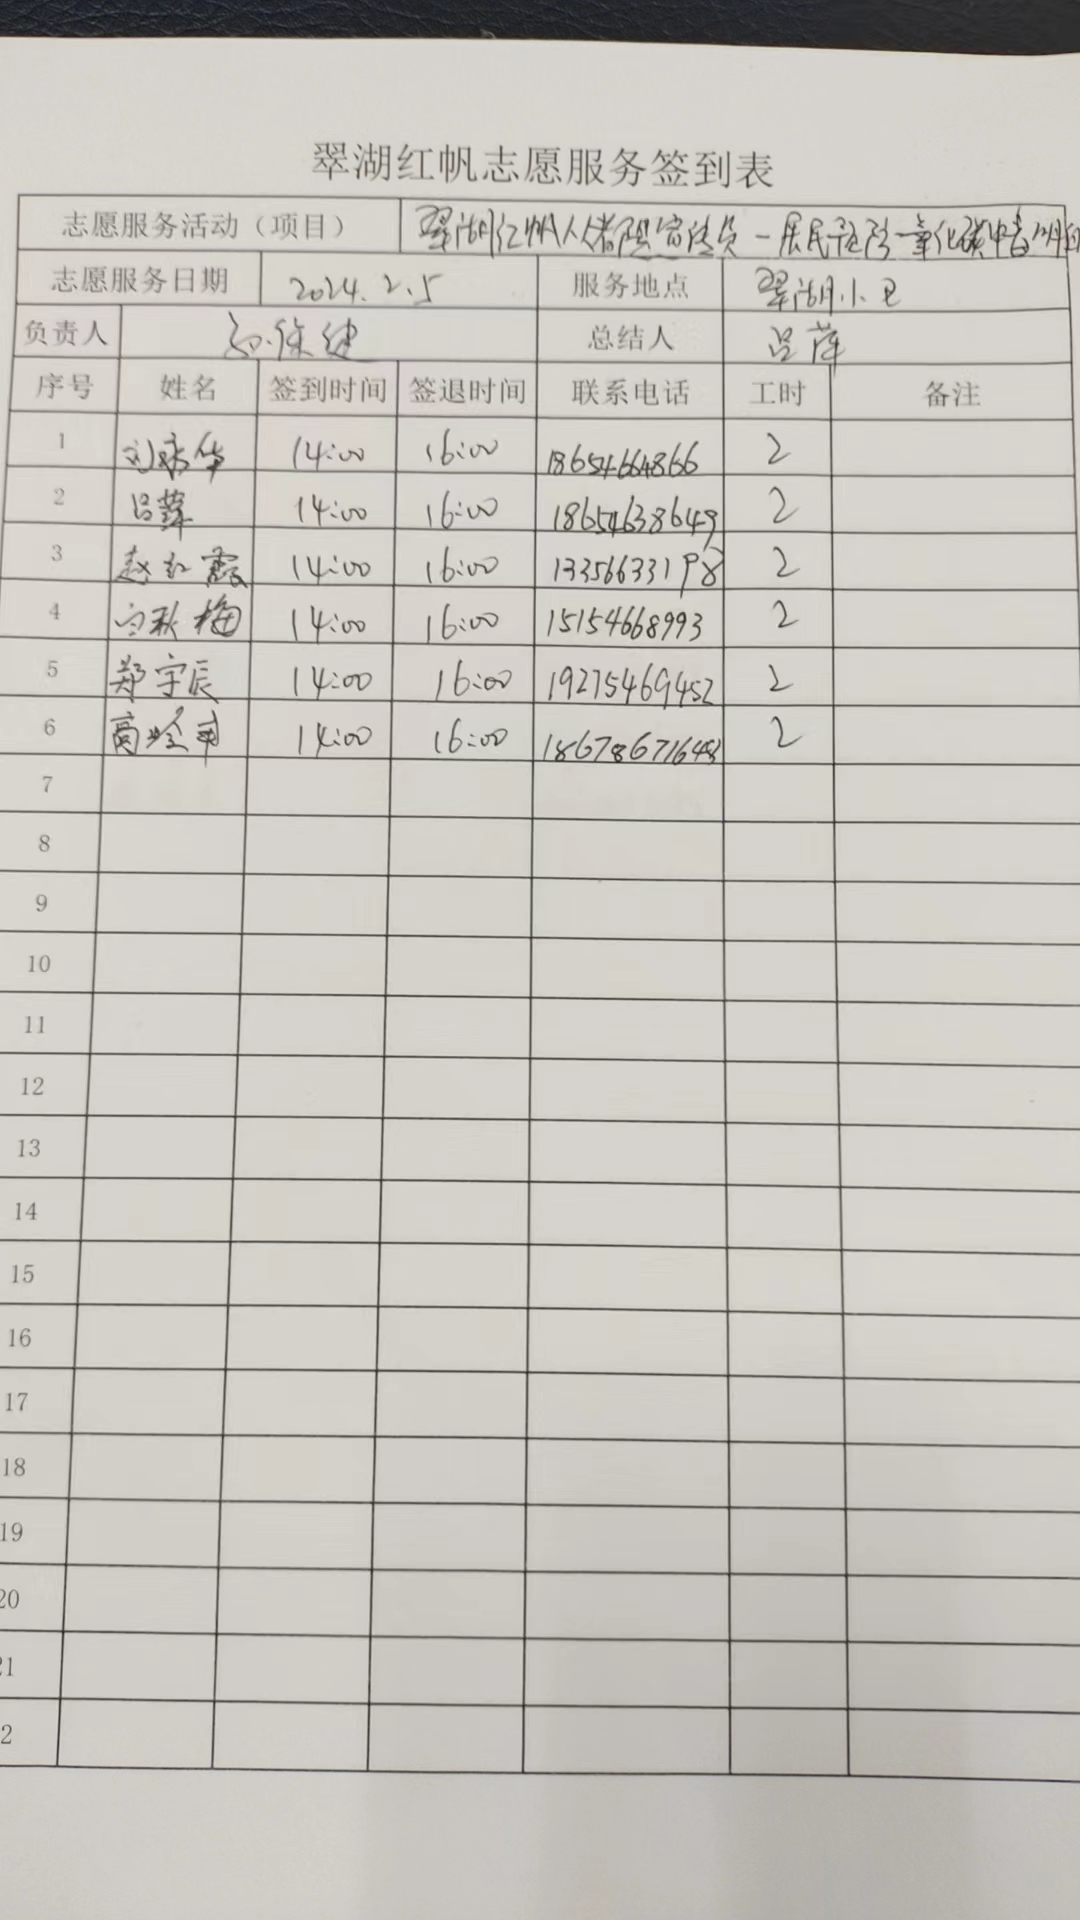 翠湖红帆志愿服务签到表
志愿服务活动（项目） 翠湖红帆人人都是宣传员－居民预防一氧化碳中毒
志愿服务日期 2024.2.5 服务地点 翠湖小卫
负责人 总结人 吕萍
序号 姓名 签到时间 签退时间 联系电话 工时 备注
1 14:00 16:00 18654664866 2
2 吕萍 14:00 16:00 18654638649 2
3 赵红霞 14:00 16:00 13356633198 2
4 秋梅 14:00 16:00 15154668993 2
5 郑宇辰 14:00 16:00 19275469452 2
6 高 14:00 16:00 2
7
8
9
10
11
12
13
14
15
16
17
18
19
20
21
2